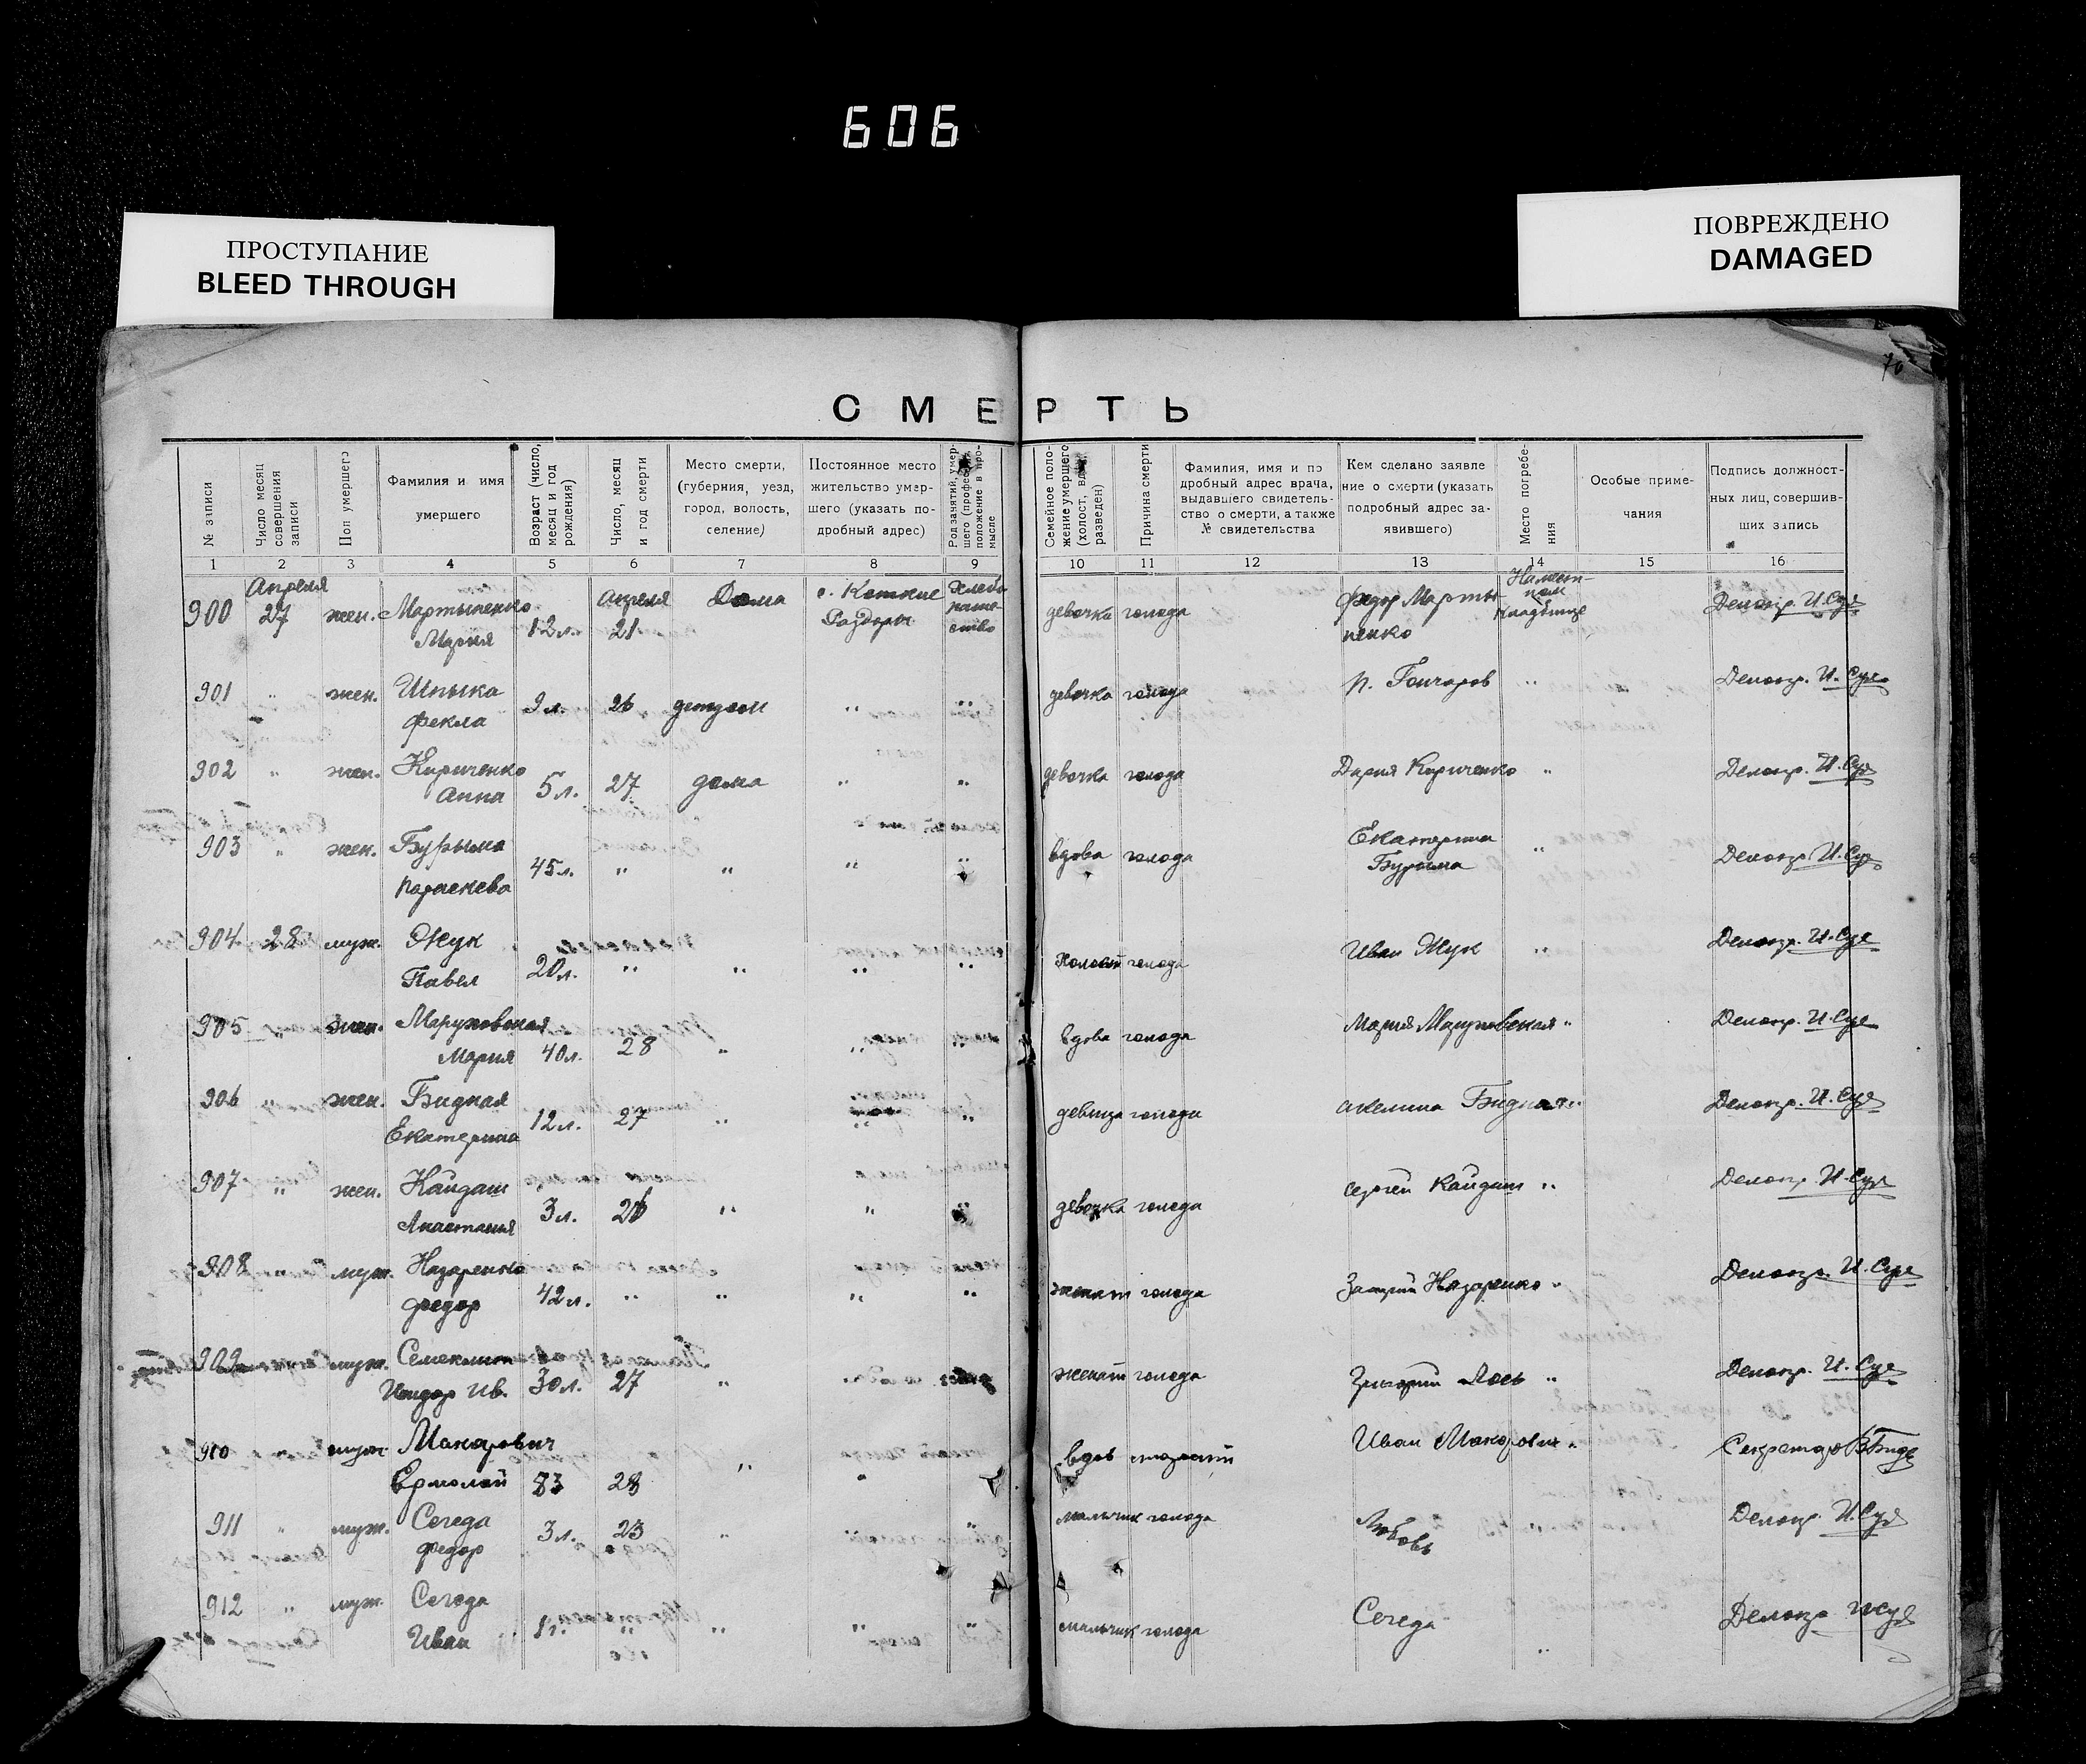 606
ПРОСТУПАНИЕ
BLEED THROUGH
ПОВРЕЖДЕНО
DAMAGED
76
СМЕРТЬ
№ записи
Число месяц
совершения
записи
Пол умершего
Фамилия и имя
умершего
Возраст (число,
месяц и год
рождения)
Число, месяц
и год смерти
Место смерти,
(губерния, уезд,
город, волость,
селение)
Постоянное место
жительство умер-
шего (указать по-
дробный адрес)
Род занятий, умер-
шего (професс
положение в про-
мысле
Семейное поло-
жение умершего
(холост, вдов
разведен)
Причина смерти
Фамилия, имя и по
дробный адрес врача,
выдавшего свидетель-
ство о смерти, а также
№ свидетельства
Кем сделано заявле
ние о смерти (указать
подробный адрес за-
явившего)
Место погребе-
ния
Особые приме-
чания
Подпись должност-
ных лиц, совершив-
ших запись
1 2 3 4 5 6 7 8 9 10 11 12 13 14 15 16
900 Апреля 27 жен. Мартыненко Мария 12 л. Апреля 21 Дома с. Раздоры Хлебо паше ство девочка голода Федор Марты ненко кладбище Делопр. И. Суд
901 " жен. Шпыка Фекла 9 л. 26 детдом " " девочка голода п. Гончаров " Делопр. И. Суд
902 " жен. Кириченко Анна 5 л. 27 дома " " девочка голода Дария Кириченко " Делопр. И. Суд
903 " жен. Бурыма Параскева 45 л. " " " " вдова голода Екатерина Бурыма " Делопр. И. Суд
904 28 муж. Жук Павел 20 л. " " " " Холост голода Иван Жук " Делопр. И. Суд
905 " жен. Маруховская Мария 40 л. 28 " " " вдова голода Мария Маруховская " Делопр. И. Суд
906 " жен. Бидная Екатерина 12 л. 27 " " " девица голода Акелина Бидная " Делопр. И. Суд
907 " жен. Кайдаш Анастасия 3 л. " " " девочка голода Сергей Кайдаш " Делопр. И. Суд
908 " муж. Назаренко Федор 42 л. " " " " женат голода Назаренко " Делопр. И. Суд
909 муж. 30 л. 27 " " женат голода Григорий Лось " Делопр. И. Суд
910 муж Макарович Ермолай 83 28 " " вдов Иван Макарович " Секретарь
911 " муж. Сегеда Федор 3 л. 23 " " " мальчик голода Любовь Делопр. И. Суд
912 " муж. Сегеда Иван 1 г. " " " " мальчик голода Сегеда " Делопр И Суд